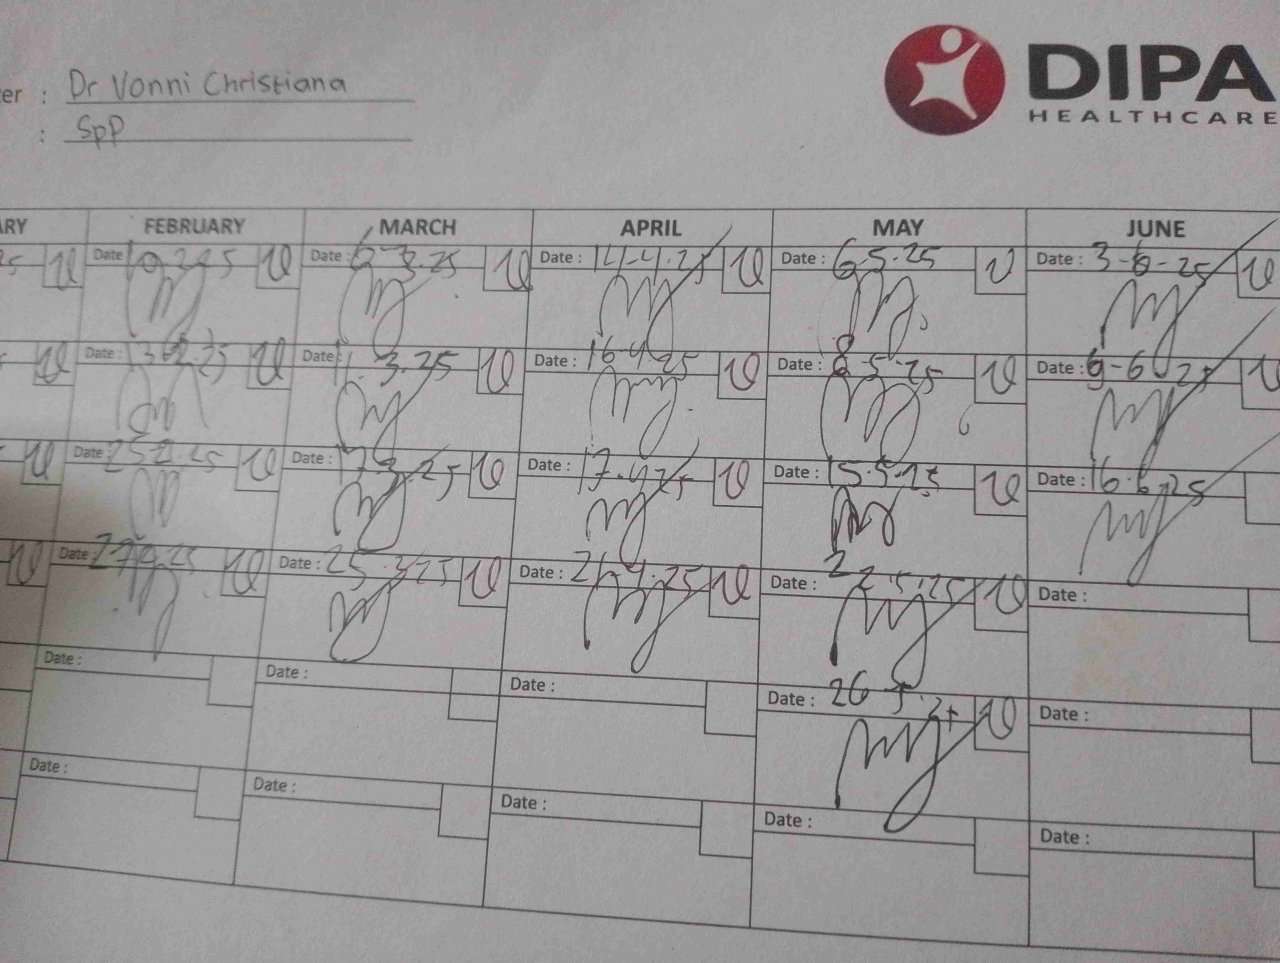 er : Dr Vonni Christiana
: SpP
DIPA
HEALTHCARE
ARY FEBRUARY MARCH APRIL MAY JUNE
25 Date Date : 6-3-25 Date : 14-4-25 Date : 6-5-25 Date : 3-6-25
Date : 13-2-25 Date : 11-3-25 Date : 16-4-25 Date : 8-5-25 Date : 9-6-25
Date : 25-2-25 Date : 17-3-25 Date : 17-4-25 Date : 15-5-25 Date : 16-6-25
Date : Date : 25-3-25 Date : 21-4-25 Date : 22-5-25 Date :
Date : Date : Date : Date : 26-5-25 Date :
Date : Date : Date : Date : Date :